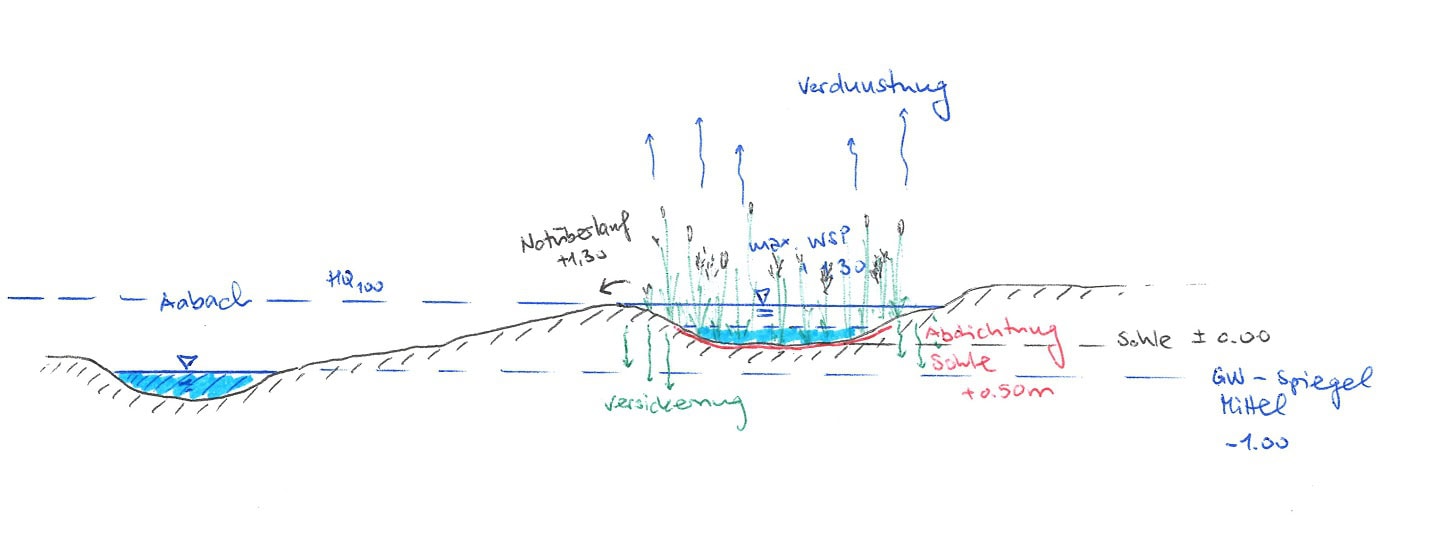 Verdunstung
Notüberlauf
+1,30
max. WSP
1,30
Aabach
HQ100
Abdichtung
Sohle
+0.50m
Sohle ± 0.00
GW - Spiegel
Mittel
-1.00
Versickerung